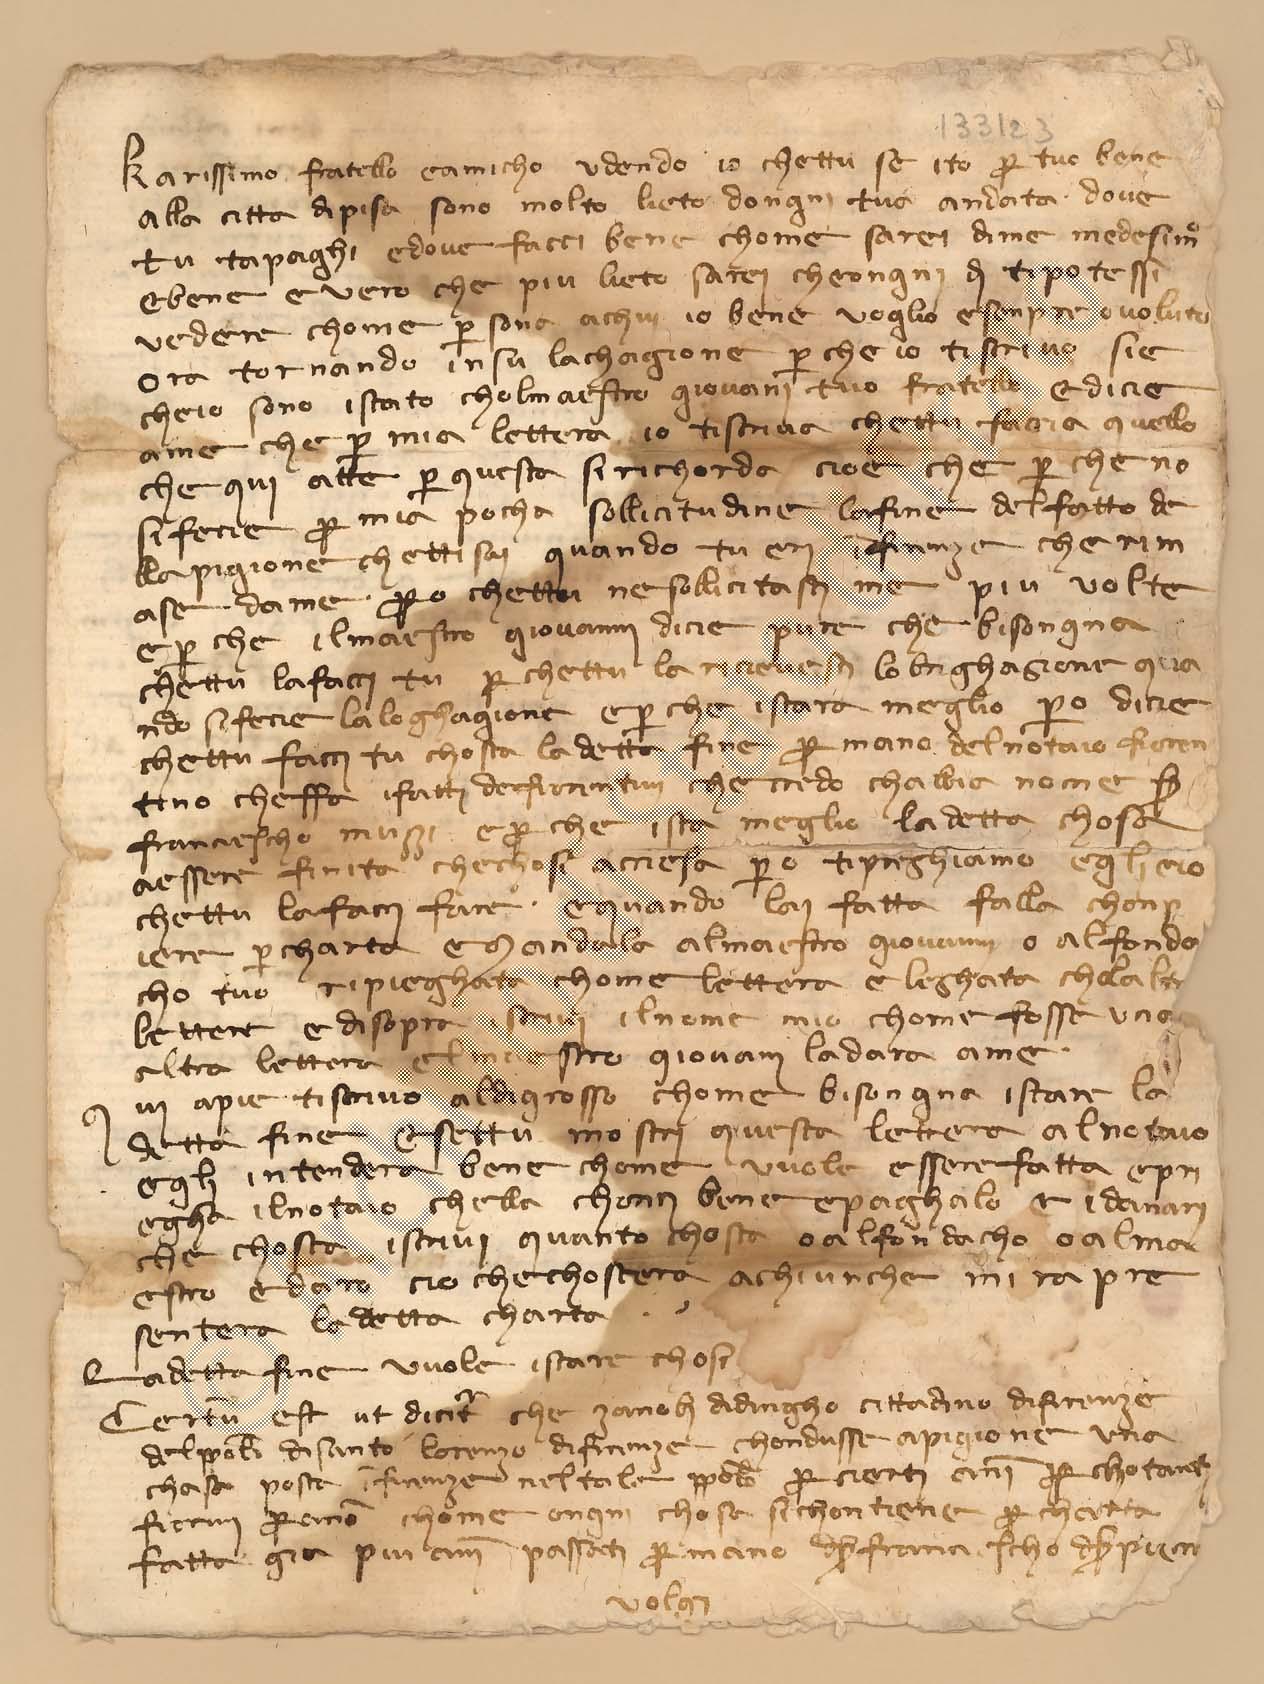 133123
Karissimo fratello eamicho udendo io chettu se ito p tuo bene
alla citta dipisa sono molto lieto dongni tua andata dove
tu tapaghi edove facci bene chome sarei dime medesimo
ebene evero che piu lieto sarei cheongni di tipotessi
vedere chome psona achui io bene voglio esenpre ovoluto
ora tornando insu lachagione pcheio tiscrivo sie
cheio sono istato cholmaestro giovani tuo fratello edicie
ame che p mia lettera io tiscriva chettu faccia quello
che qui atte pquesta sirichorda cioe che p che no
sifecie p mia pocha sollicitudine lafine delfatto de
llapigione chettisai quando tu eri ifirenze che rim
ase dame po chettu nesollicitasti me piu volte
epche ilmaestro giovanni dicie pure che bisongna
chettu lafacci tu p chettu la ricievesti lobrighagione qua
ndo sifecie laloghagione epche istara meglio po dicie
chettu facci tu chosta ladetta fine p mano delnotaio fioren
tino cheffa ifatti defiorentini che credo chabbia nome s
franciescho muzzi epche ista meglio ladetta chosa
aessere finita chechosi acciesa po tipreghiamo egli eio
chettu lafacci fare equando lai fatta falla chonp
iere pcharta emandala almaestro giovanni o alfonda
cho tuo ripieghata chome lettera eleghata cholaltr
lettere edisopra scrivi ilnome mio chome fosse una
altra lettera elmaestro giovani ladara ame
Qui apie tiscrivo aldigrosso chome bisongna istare la
detta fine esettu mostri questa lettera alnotaio
egli intendera bene chome vuole esserefatta epri
egha ilnotaio chella chonti bene epaghalo e idanari
che chosta iscrivi quanto chosta oalfondacho oalma
estro edaro cio chechostera achiunche mi rapre
sentera ladetta charta
Ladetta fine vuole istare chosi
Certu est ut dicit che zanobi didingho cittadino difirenze
delpplo disanto lorenzo difirenze chondusse apigione una
chasa posta ifirenze neltale pplo p cierti ani p
fiorini p ano chome ongni chosa sichontiene p charta
fatta gia piu ani passati p mano franciescho
volgi